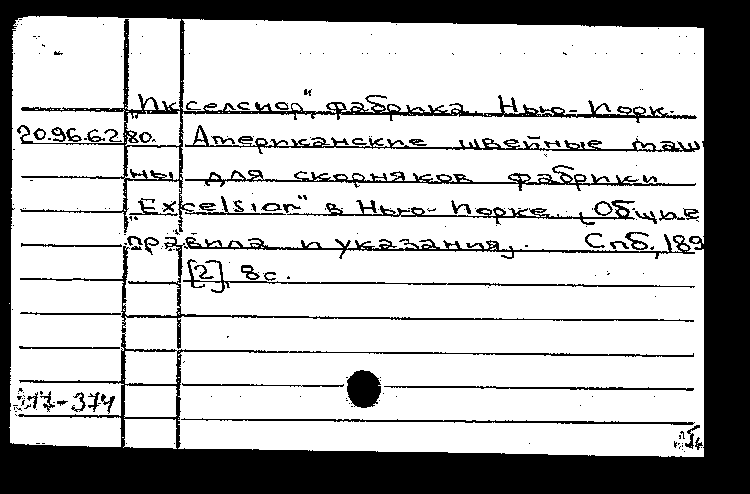 "Икселсиор", фабрика. Нью-Йорк.
20.96.6.280. Американские швейные маши
ны для скорняков фабрики
"Excelsior" в Нью-Йорке. [Общие
правила и указания]. Спб, 189
[2], 8с.
317-374